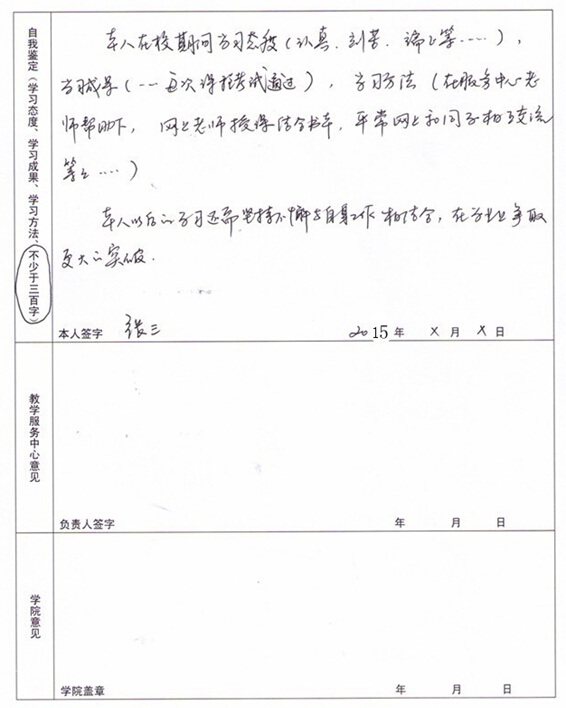 自我鉴定（学习态度、学习成果、学习方法、不少于三百字）
本人在校期间学习态度（认真、刻苦、端正等……），
学习成果（一次课程考试通过），学习方法（在服务中心老
师帮助下，网上老师授课结合书本，平常网上和同学相互交流
等等……）
本人以后的学习还需坚持不懈与自身工作相结合，在学业上争取
更大的突破.
本人签字 张三 2015年 X月 X日
教学服务中心意见
负责人签字 年 月 日
学院意见
学院盖章 年 月 日